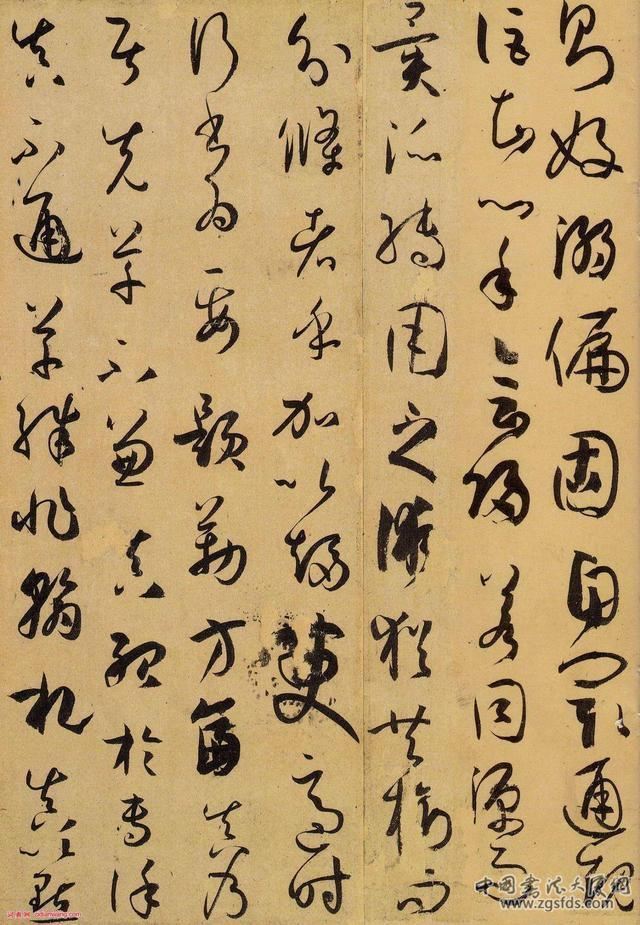 則好溺偏固自閡通規
詎知心手會歸若同源而
異派轉用之術猶共樹而
分條者乎加以趨變適時
行書為要題勒方畐真乃
居先草不兼真殆於專謹
真不通草殊非翰札真以點
中国書法大师网
www.zgsfds.com
词典网 cidianwang.com